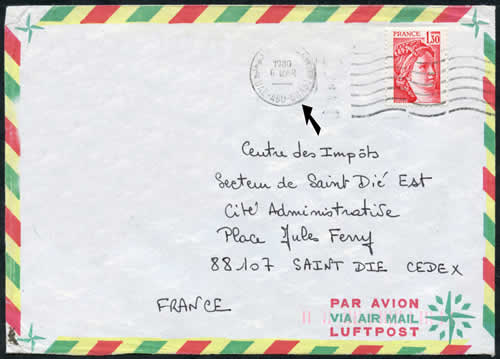 1980
FRANCE 1,30
Centre des Impôts
Secteur de Saint Dié Est
Cité Administrative
Place Jules Ferry
88107 SAINT DIE CEDEX
FRANCE
PAR AVION
VIA AIR MAIL
LUFTPOST